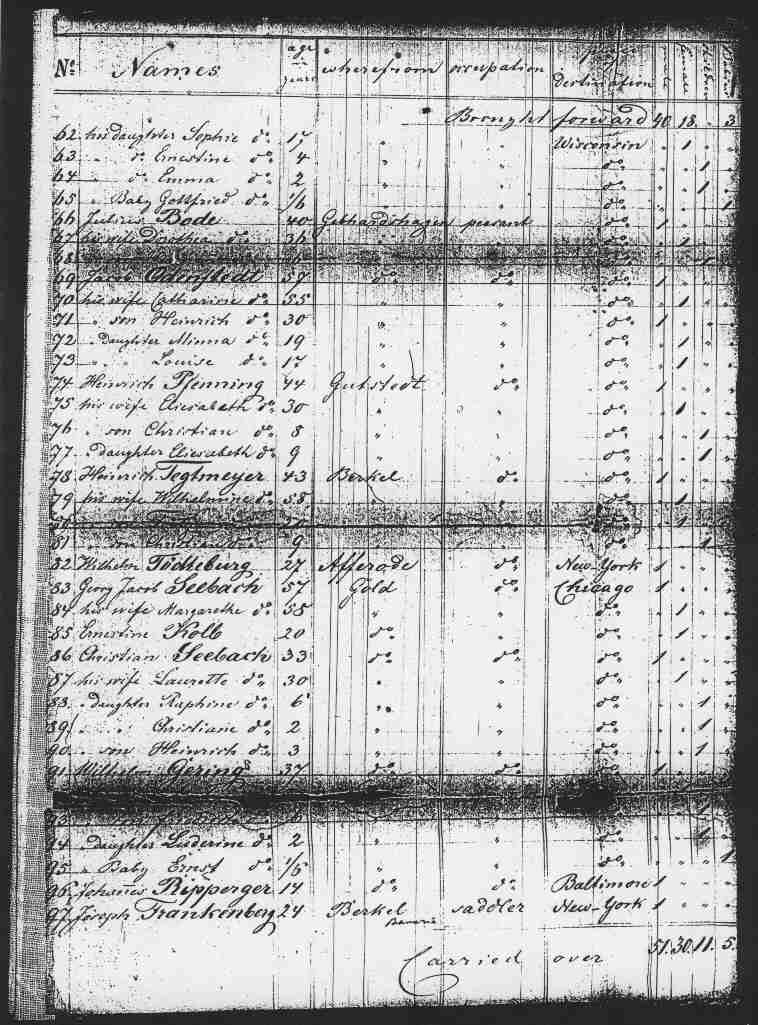 No. Names age years wherefrom occupation place destination
Brought forward 40 18 3
62 his daughter Sophie do. 17 " " Wisconsin " 1 " "
63 " do Ernestine do. 4 " " do. " " 1 "
64 " do. Emma do. 2 " " do. " " 1 "
65 " Baby Gottfried do. 1/6 " " do. " " " 1
66 Julius Bode 40 Gebhardshagen peasant do. 1 " " "
67 his wife Dorthea do. 36 " " do. " 1 " "
68
69 Jacob Odenstedt 57 do. do. do. 1 " " "
70 his wife Catharine do. 55 " " do. " 1 " "
71 " son Heinrich do. 30 " " do. 1 " " "
72 " Daughter Minna do. 19 " " do. " 1 " "
73 " " Louise do. 17 " " do. " 1 " "
74 Heinrich Pfenning 44 Gutstedt do. do. 1 " " "
75 his wife Eliesabeth do. 30 " " do. " 1 " "
76 " son Christian do. 8 " " do. " " 1 "
77 " daughter Eliesabeth do. 9 " " do. " " 1 "
78 Heinrich Tegtmeyer 43 Berkel do. do. 1 " " "
79 his wife Wilhelmine do. 58 " " do. " 1 " "
80
81 " son 9 " " do. " " 1
82 Wilhelm Tödheburg 27 Afferode do. New-York 1 " " "
83 Georg Jacob Seebach 57 Gold do. Chicago 1 " " "
84 his wife Margarethe do. 58 " " do. " 1 " "
85 Ernestine Kolb 20 do. " do. " 1 " "
86 Christian Seebach 33 do. do. do. 1 " " "
87 his wife Laurette do. 30 " " do. " 1 " "
88 " daughter Raphine do. 6 " " do. " " 1 "
89 " " Christiane do. 2 " " do. " " 1 "
90 " son Heinrich do. 3 " " do. " " 1 "
91 Wilhelm Gering 37 do. do. do. 1 " " "
93
94 " Daughter Luderine do. 2 " " " " 1 "
95 " Baby Ernst do. 1/6 " " do. " " " 1
96 Johannes Ripperger 14 do. do. Baltimore 1 " " "
97 Joseph Frankenberg 24 Berkel saddler New-York 1 " " "
Bavaria
Carried over 51. 30. 11. 5.